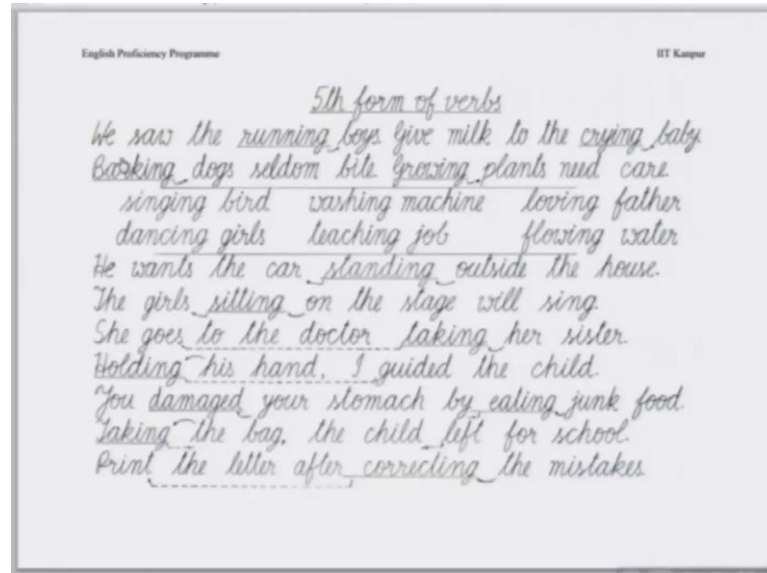 English Proficiency Programme IIT Kanpur
5th form of verbs
We saw the running boys. Give milk to the crying baby.
Barking dogs seldom bite. Growing plants need care.
singing bird washing machine loving father
dancing girls teaching job flowing water
He wants the car standing outside the house.
The girls sitting on the stage will sing.
She goes to the doctor taking her sister.
Holding his hand, I guided the child.
You damaged your stomach by eating junk food.
Taking the bag, the child left for school.
Print the letter after correcting the mistakes.